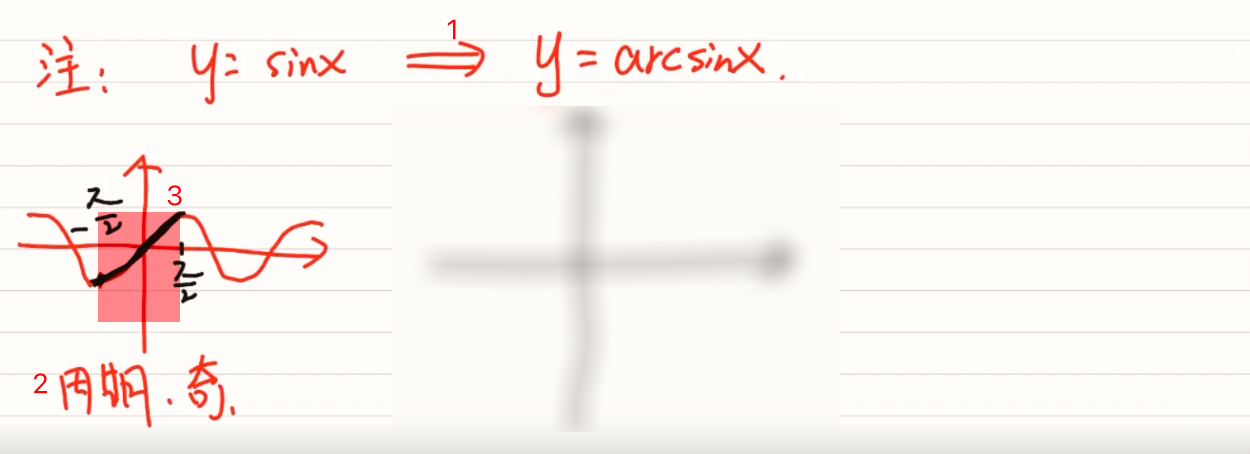 注: y= sinx 1 ⟹ y = arcsinx.
3
-π/2
π/2
2 周期. 奇.